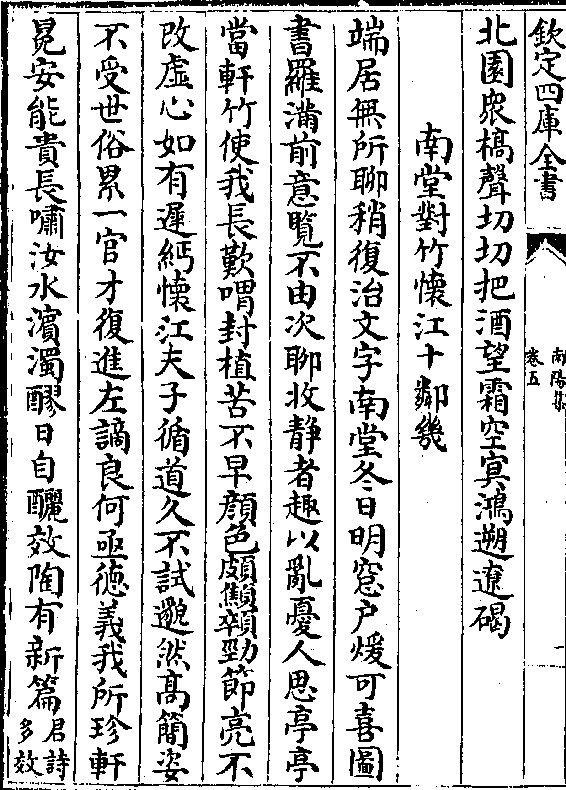 欽定四庫全書
南陽集
卷五
北園衆槁聲切切把酒望霜空冥鴻遡遼碣
南堂對竹懷江十鄰幾
端居無所聊稍復治文字南堂冬日明窓户煖可喜圖
書羅滿前意覽不由次聊收静者趣以亂憂人思亭亭
當軒竹使我長歎喟封植苦不早顔色頗顦顇勁節亮不
改虚心如有遲緬懷江夫子循道久不試邈然髙簡姿
不受世俗累一官才復進左謫良何亟徳義我所珍軒
冕安能貴長嘯汝水濱濁醪日自釃效陶有新篇君詩
多效